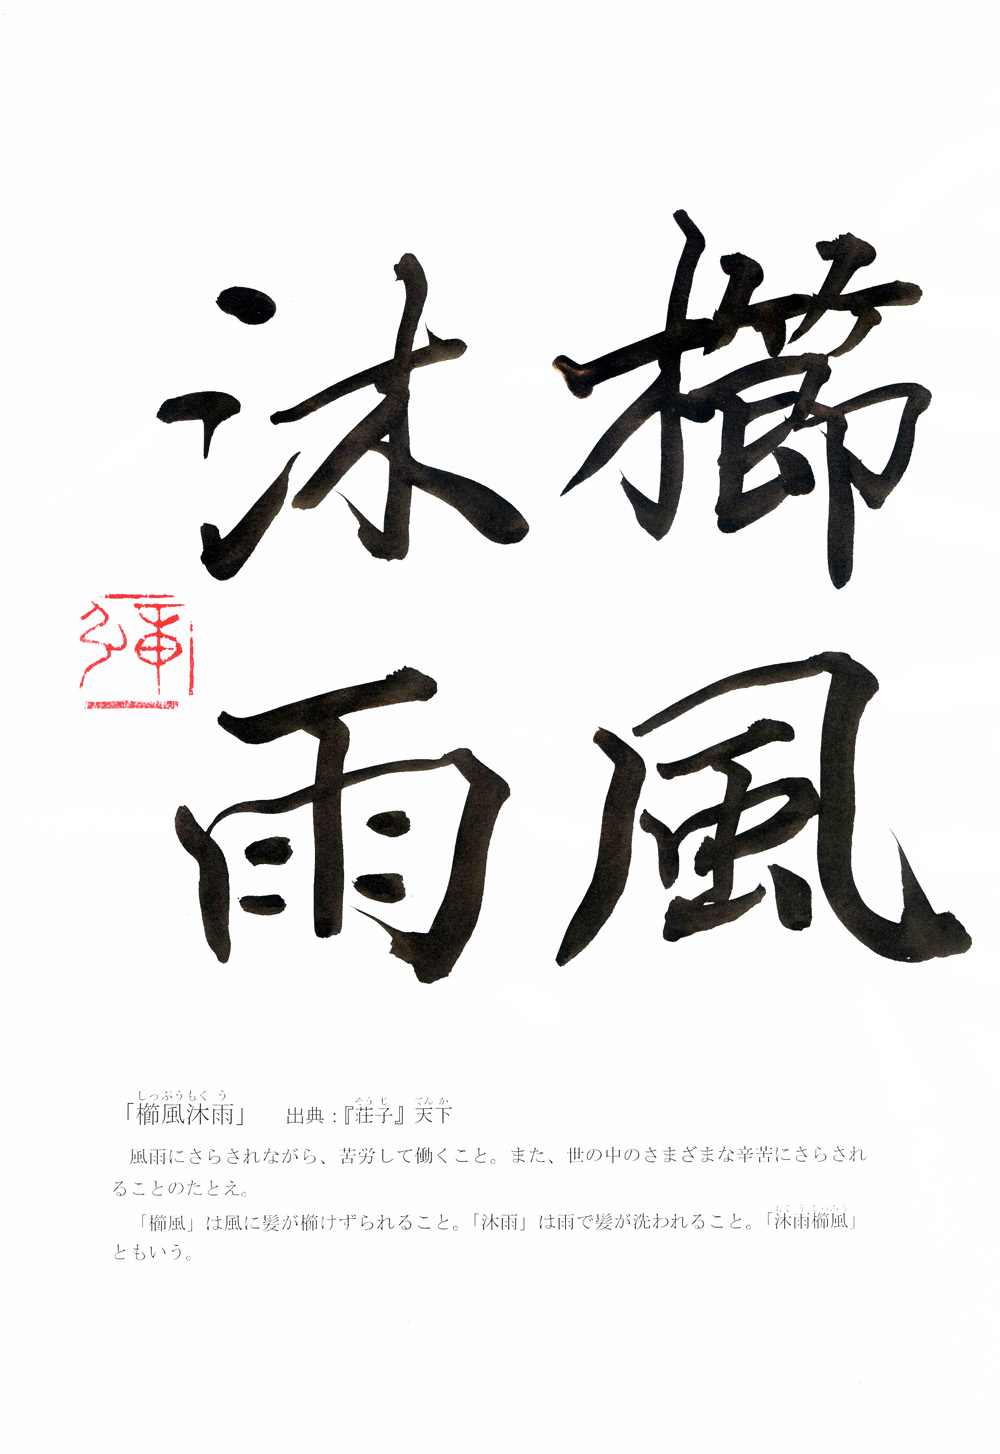 櫛風
沐雨
「櫛風沐雨」 出典：『荘子』天下
しっぷうもくう そうじ てんか
風雨にさらされながら、苦労して働くこと。また、世の中のさまざまな辛苦にさらされ
ることのたとえ。
「櫛風」は風に髪が櫛けずられること。「沐雨」は雨で髪が洗われること。「沐雨櫛風」
もくうしっぷう
ともいう。